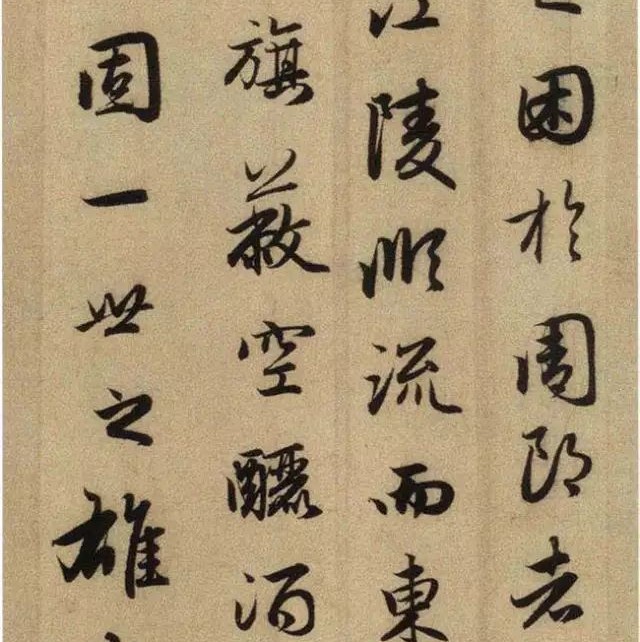 困於周郎者
江陵順流而東
旗蔽空釃酒
固一世之雄